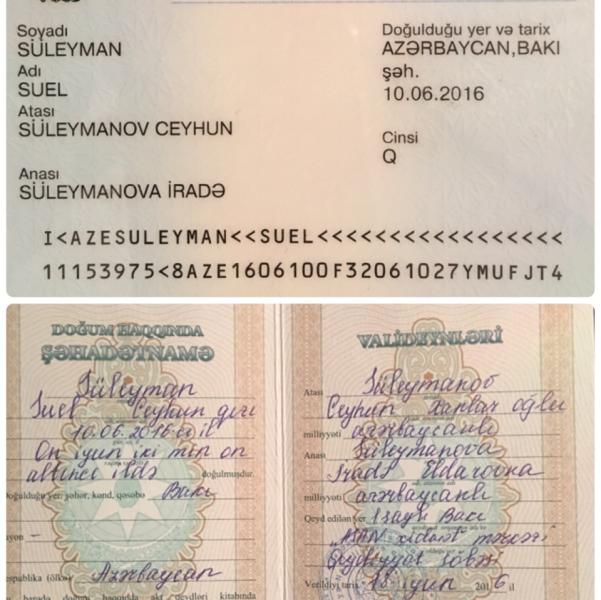 Soyadı
SÜLEYMAN
Adı
SUEL
Atası
SÜLEYMANOV CEYHUN
Anası
SÜLEYMANOVA İRADƏ
Doğulduğu yer və tarix
AZƏRBAYCAN,BAKI
şəh.
10.06.2016
Cinsi
Q
I<AZESULEYMAN<<SUEL<<<<<<<<<<<<<<<<<
11153975<8AZE1606100F32061027YMUFJT4
DOĞUM HAQQINDA
ŞƏHADƏTNAMƏ
Süleyman
Suel Ceyhun qızı
10.06.2016-cı il
On iyun iki min on
altıncı ildə doğulmuşdur.
Doğulduğu yer: şəhər, kənd, qəsəbə Bakı
yon –
espublika (ölkə) Azərbaycan
barədə doğum haqqında akt qeydləri kitabında
VALİDEYNLƏRİ
Atası Süleymanov
Ceyhun Xanlar oğlu
milliyyəti azərbaycanlı
Anası Süleymanova
İradə Eldarovna
milliyyəti azərbaycanlı
Qeyd edilən yer 1 saylı Bakı
ASAN xidmət mərkəzi
Qeydiyyat şöbəsi
Verildiyi tarix 18 iyun 2016 il